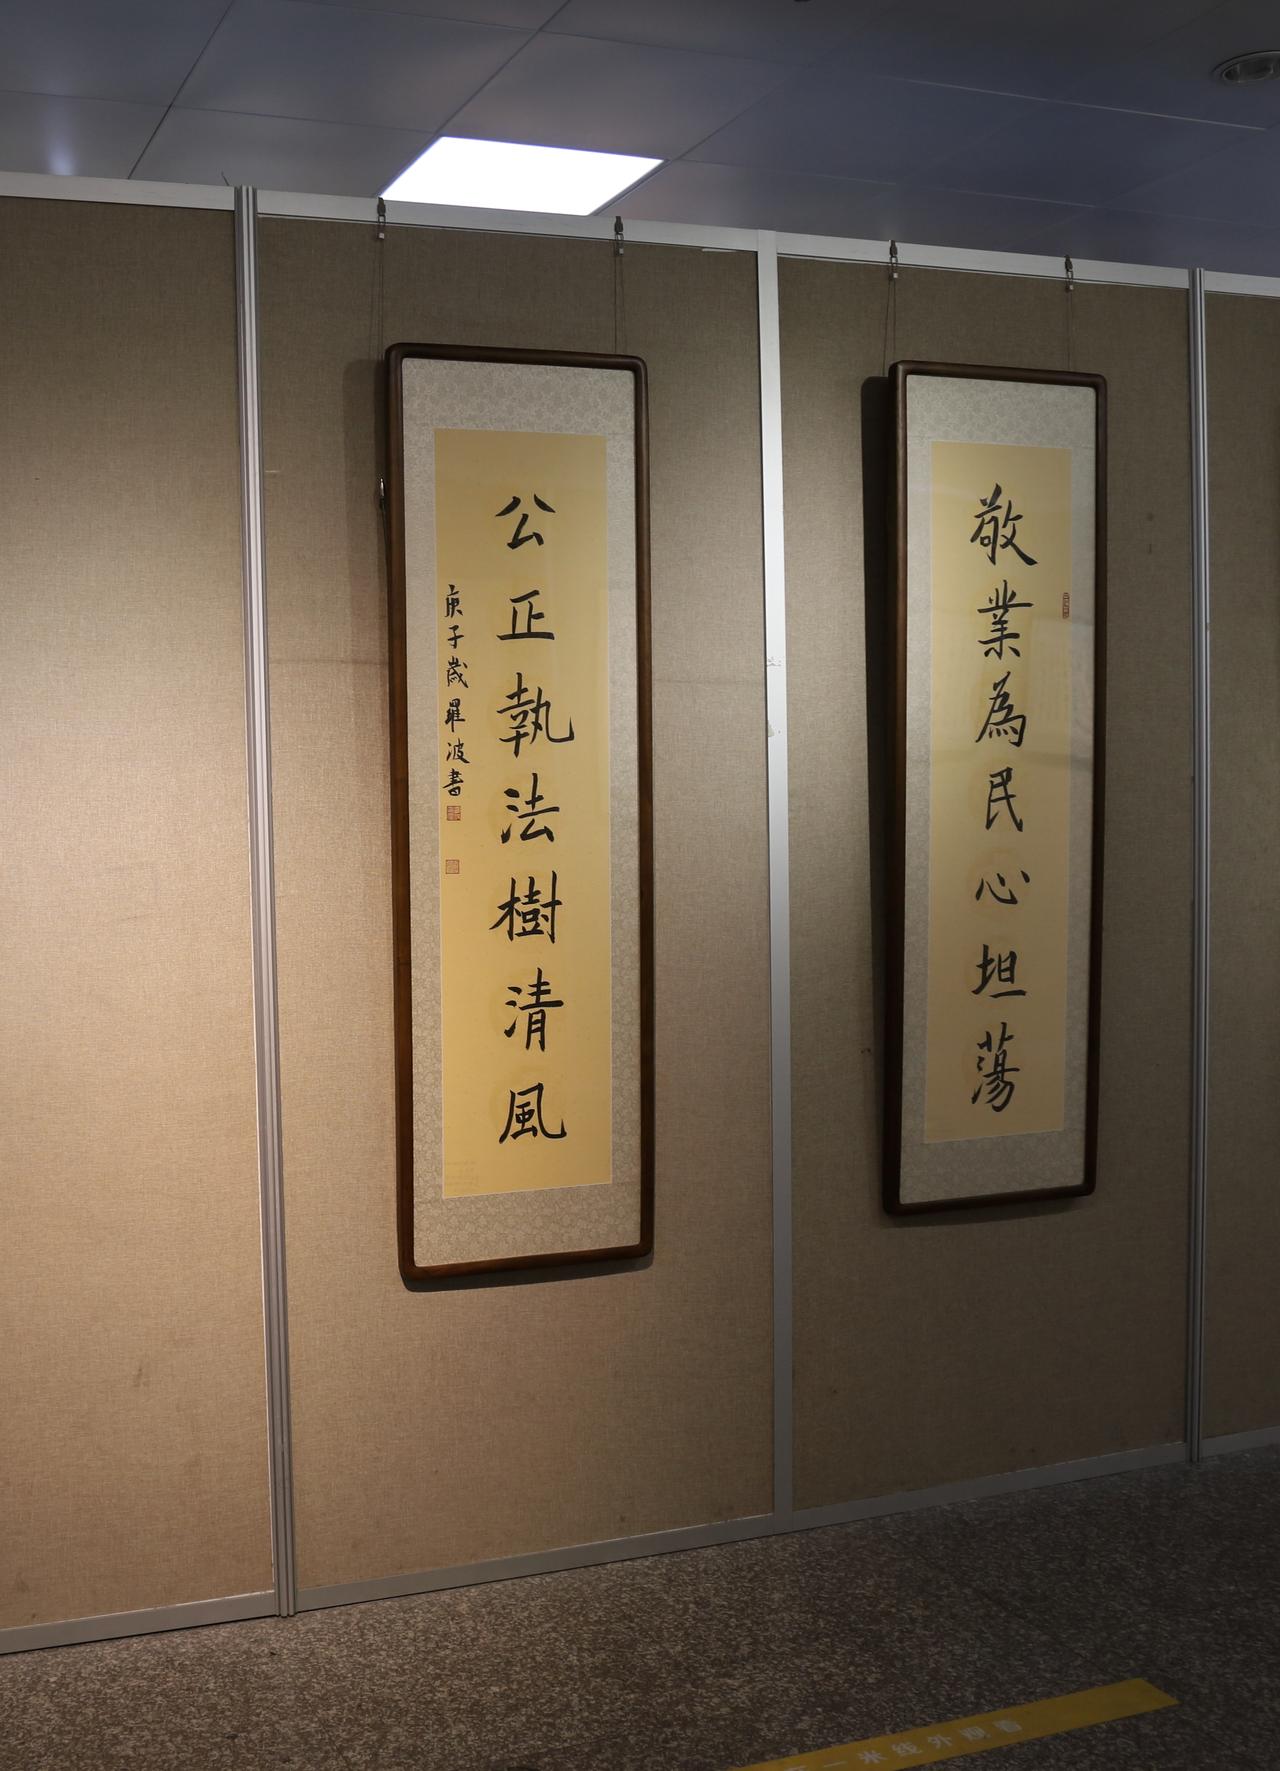 敬業為民心坦蕩
公正執法樹清風
庚子歲羅波書
一米线外观看